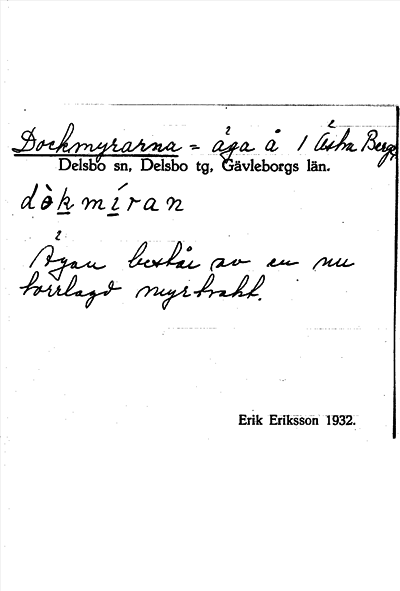 Dockmyrarna = äga å 1 Åstra Berge
Delsbo sn, Delsbo tg, Gävleborgs län.
dòkmíran
Ägan består av en nu
torrlagd myrtrakt.
Erik Eriksson 1932.